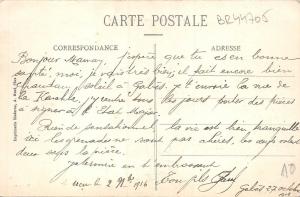 CARTE POSTALE
BR44705
CORRESPONDANCE
ADRESSE
Bonjour Maman, j'espère que tu es en bonne
santé, moi, je vais très bien, il fait encore bien
chaud au soleil à Gabès. Je t'envoie la vue de
la Kasbah, j'y rentre tous les jours porter des pièces
à signer à l'Etat Major.
Rien de sensationnel, la vie est bien tranquille
ici les grenades ne sont pas chères, les
deux sous la pièce.
Je termine en t'embrassant
reçu le 2 9bre 1916 Ton fils
Gabès 27 octobre
10